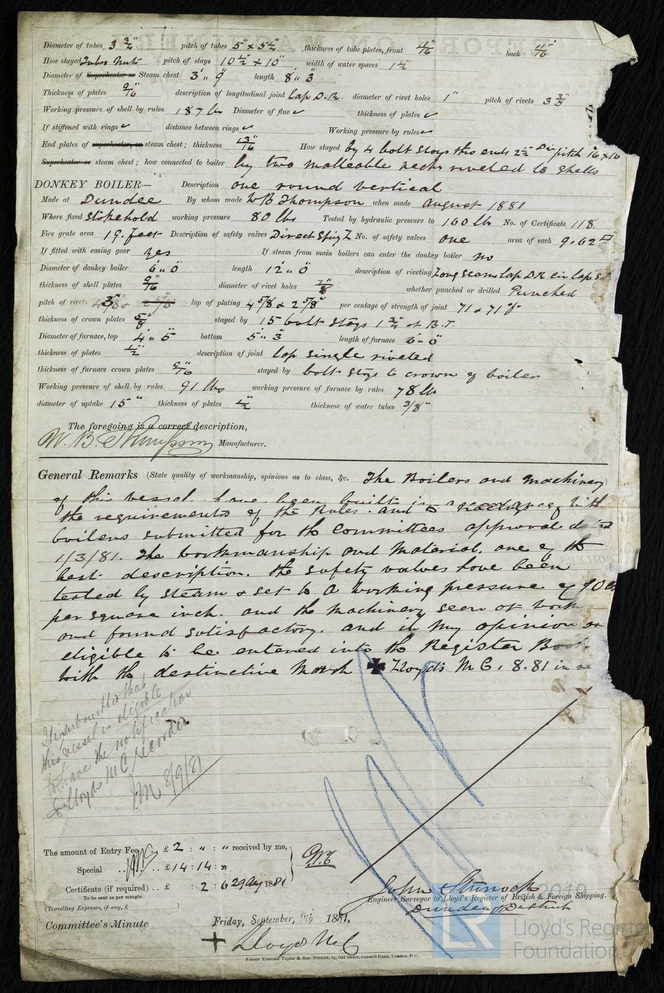 Diameter of tubes 3 3/4" pitch of tubes 5" x 5 1/4" thickness of tube plates, front 4/16" back 4/16"
How stayed Tubes Nuts pitch of stays 10 1/2" x 10" width of water spaces 1 1/4"
Diameter of Superheater or Steam chest. 3" 9 length 8" 3
Thickness of plates 9/16" description of longitudinal joint Lap D.R. diameter of rivet holes 1" pitch of rivets 3 3/4"
Working pressure of shell by rules 187 lbs Diameter of flue ✓ thickness of plates ✓
If stiffened with rings ✓ distance between rings ✓ Working pressure by rules ✓
End plates of superheater, or steam chest; thickness 13/16" How stayed by 4 bolt stays this ends 2 1/2" Di pitch 16x10
Superheater or steam chest; how connected to boiler by two malleable necks riveted to shells
DONKEY BOILER— Description one round vertical
Made at Dundee By whom made W B Thompson when made August 1881
Where fixed Stokehold working pressure 80 lbs Tested by hydraulic pressure to 160 lb No. of Certificate 118
Fire grate area 19. feet Description of safety valves Direct Spring No. of safety valves one area of each 9.62 □"
If fitted with easing gear yes If steam from main boilers can enter the donkey boiler no
Diameter of donkey boiler 6" 0 length 12" 0 description of riveting Long seams Lap D.R. cir Lap S.
thickness of shell plates 9/16" diameter of rivet holes 7/8" whether punched or drilled Punched
pitch of rivets 3" lap of plating 4 5/8 & 2 5/8" per centage of strength of joint 71 & 71%
thickness of crown plates 5/8" stayed by 15 bolt stays 1 3/4" of B.T.
Diameter of furnace, top 4" 5 bottom 5" 3 length of furnace 6" 0
thickness of plates 1/2" description of joint lap single riveted
thickness of furnace crown plates 9/16" stayed by bolt stays to crown of boiler
Working pressure of shell by rules 91 lbs working pressure of furnace by rules 78 lb
diameter of uptake 15" thickness of plates 1/2" thickness of water tubes 3/8"
The foregoing is a correct description,
W. B. Thompson Manufacturer.
General Remarks (State quality of workmanship, opinions as to class, &c. The Boilers and machinery
of this vessel have been built in accordance with
the requirements of the Rules. and to
boilers submitted for the Committees approval dated
1/3/81. The workmanship and material, are of the
best description. the safety valves have been
tested by steam & set to a working pressure of 90 lbs
per square inch. and the machinery seen at work
and found satisfactory. and in my opinion are
eligible to be entered into the Register Book
with the destinctive Mark ✠ Lloyds M C. 8.81 in
It is submitted that
this vessel is eligible
to have the notification
✠ Lloyds M C recorded
8/9/81
The amount of Entry Fee .. £ 2 : " : " received by me,
Special .. £ 14 : 14 : "
Certificate (if required) .. £ : 2 : 6 29 Aug 1881
To be sent as per margin.
(Travelling Expenses, if any, £
John Sturrock
Engineer Surveyor to Lloyd's Register of British & Foreign Shipping.
Dundee District
Committee's Minute Friday, September 9th 1881.
+ Lloyds M C
2019
LR
Lloyd's Register
Foundation